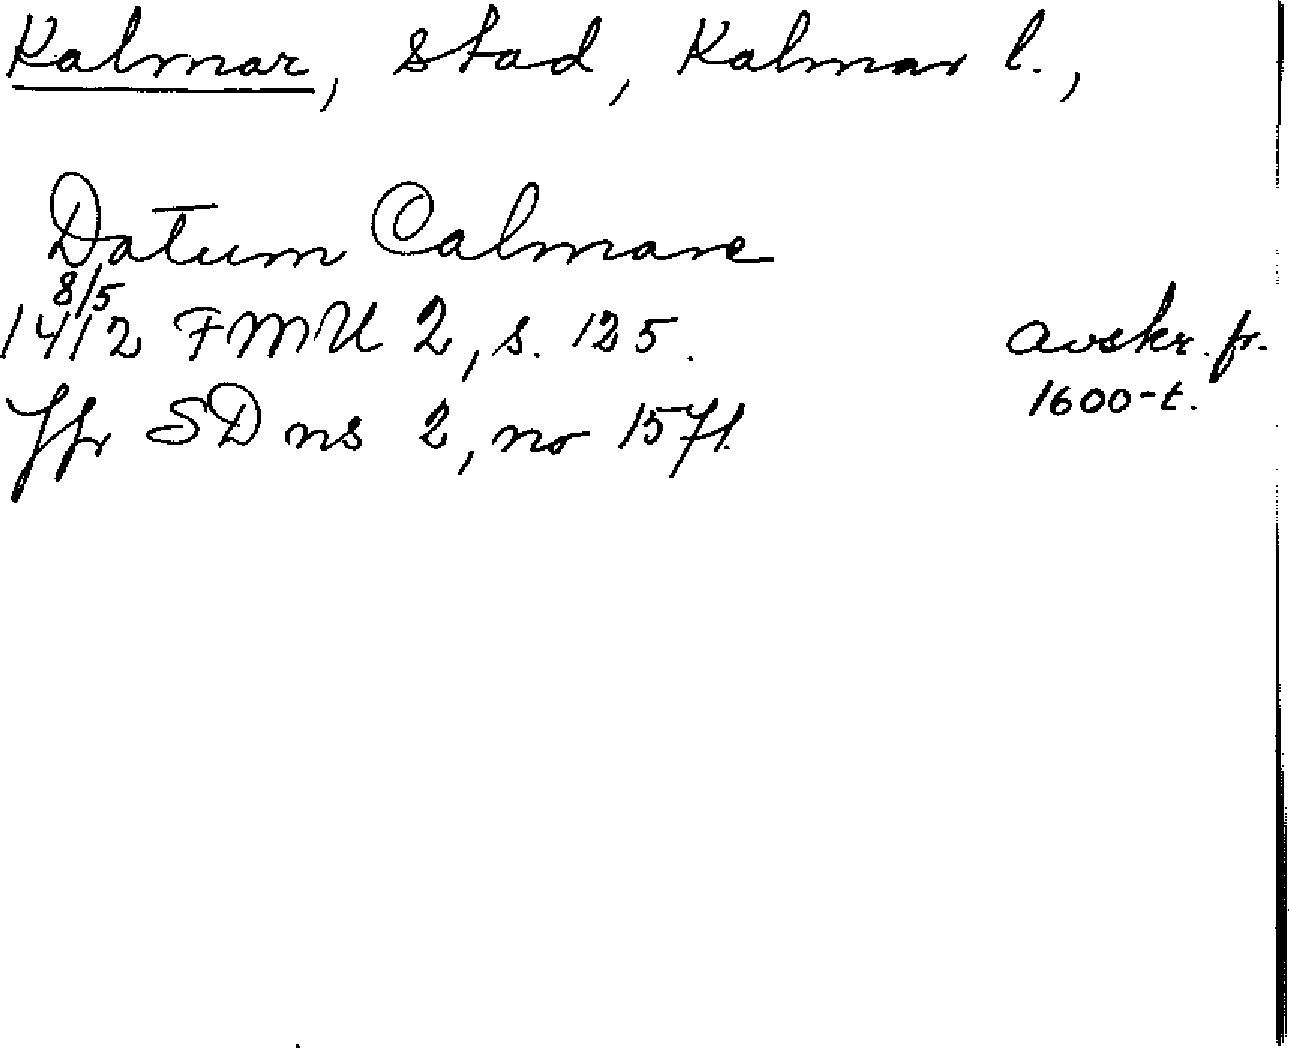 Kalmar, stad, Kalmar l.,
Datum Calmare
8/5
1412 FMU 2, s. 125.
avskr. fr.
1600-t.
Jfr SD ns 2, no 1571.